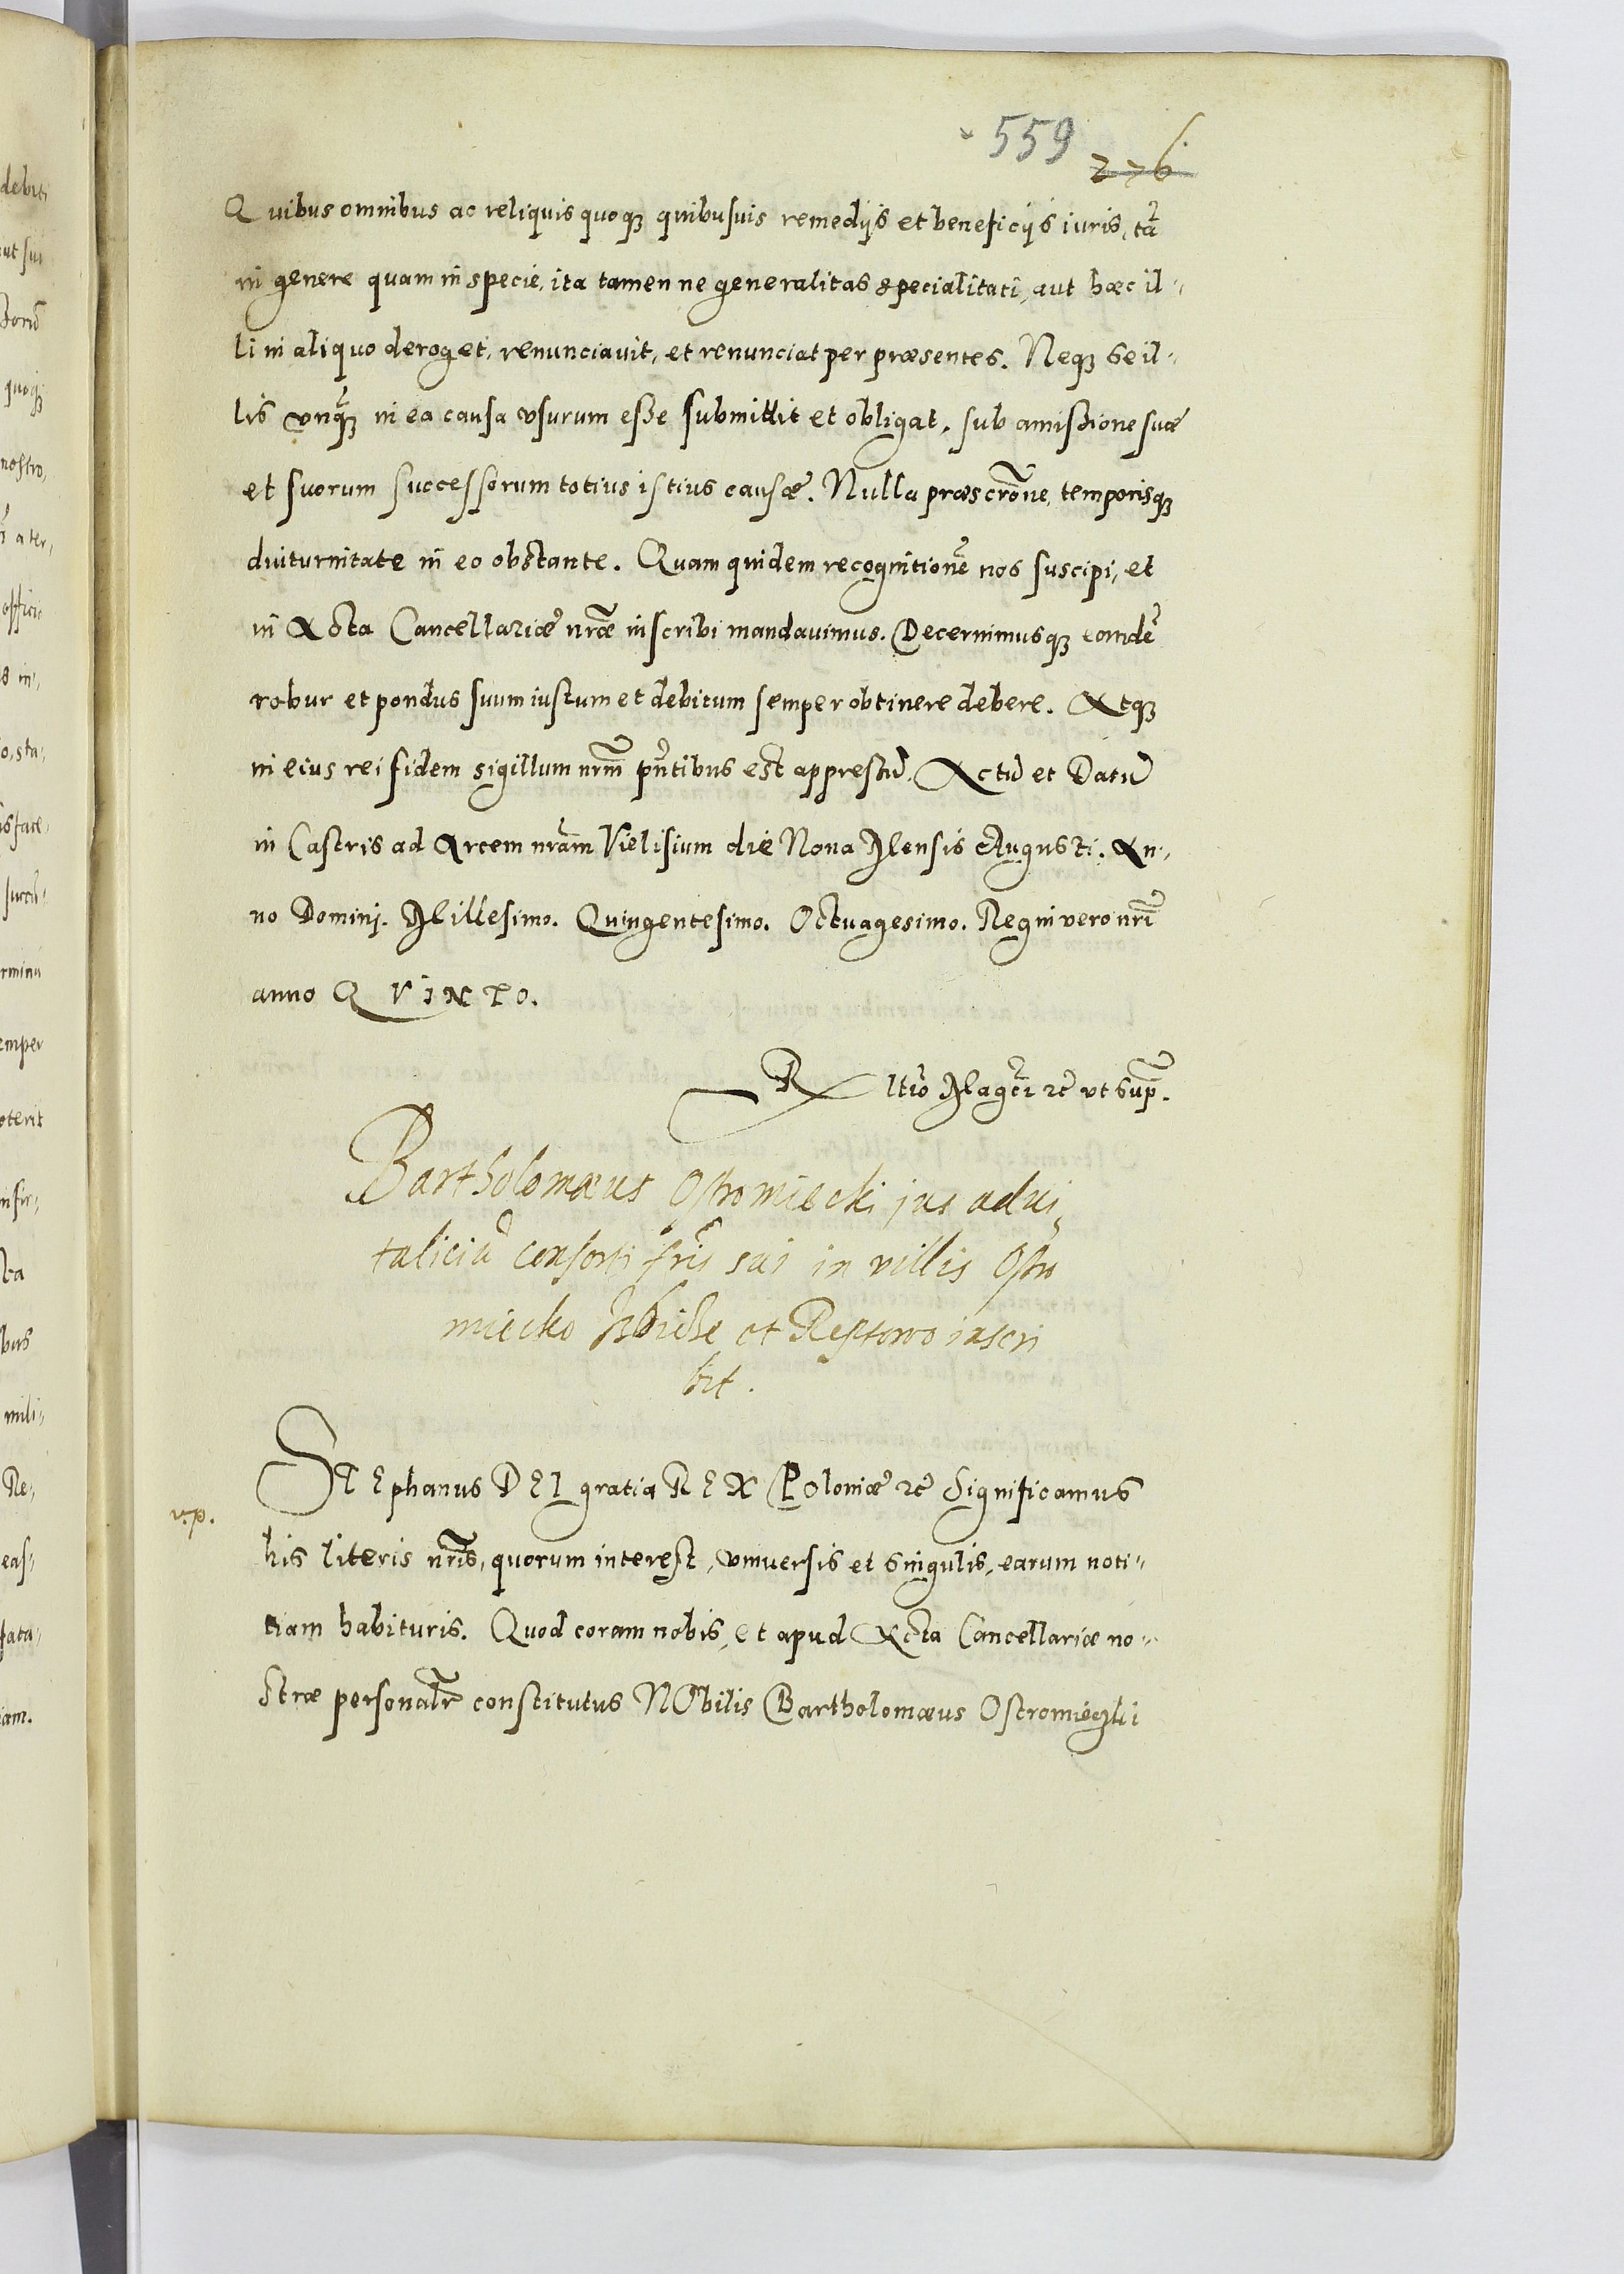 559 226
Quibus omnibus ac reliquis quoqꝫ quibusuis remedijs et beneficijs iuris, tā
in genere quam in specie, ita tamen ne generalitas specialitati, aut hæc il-
li in aliquo deroget, renunciauit, et renunciat per præsentes. Neqꝫ se il-
lis vnq̃ꝫ in ea causa vsurum esse submittit et obligat, sub amissione suæ
et suorum successorum totius istius causæ. Nulla præscrōne, temporisqꝫ
diuturnitate in eo obstante. Quam quidem recognitionē nos suscipi, et
in Acta Cancellariæ nr̄æ inscribi mandauimus. Decernimusqꝫ eamdē
robur et pondus suum iustum et debitum semper obtinere debere. Atqꝫ
in eius rei fidem sigillum nr̄m pn̄tibus est appressū. Actū et Datū
in Castris ad Arcem nr̄am Vielisium die Nona Mensis Augusti. An-
no Dominj. Millesimo. Quingentesimo. Octuagesimo. Regni vero nr̄i
anno QVINTO.
R ltīo Mag̃ci ꝛc̃ vt sup̄.
Bartholomæus Ostromiecki jus adui-
taliciū consorti fr̄is sui in villis Ostro
miecko et Reptowo inscri
bit.
v.p.
STEphanus DEI gratia REX Poloniæ ꝛc̃ Significamus
his literis nr̄is, quorum interest, vniuersis et singulis, earum noti-
tiam habituris. Quod coram nobis, et apud Acta Cancellariæ no-
stræ personalr̄ constitutus NObilis Bartholomæus Ostromieczki